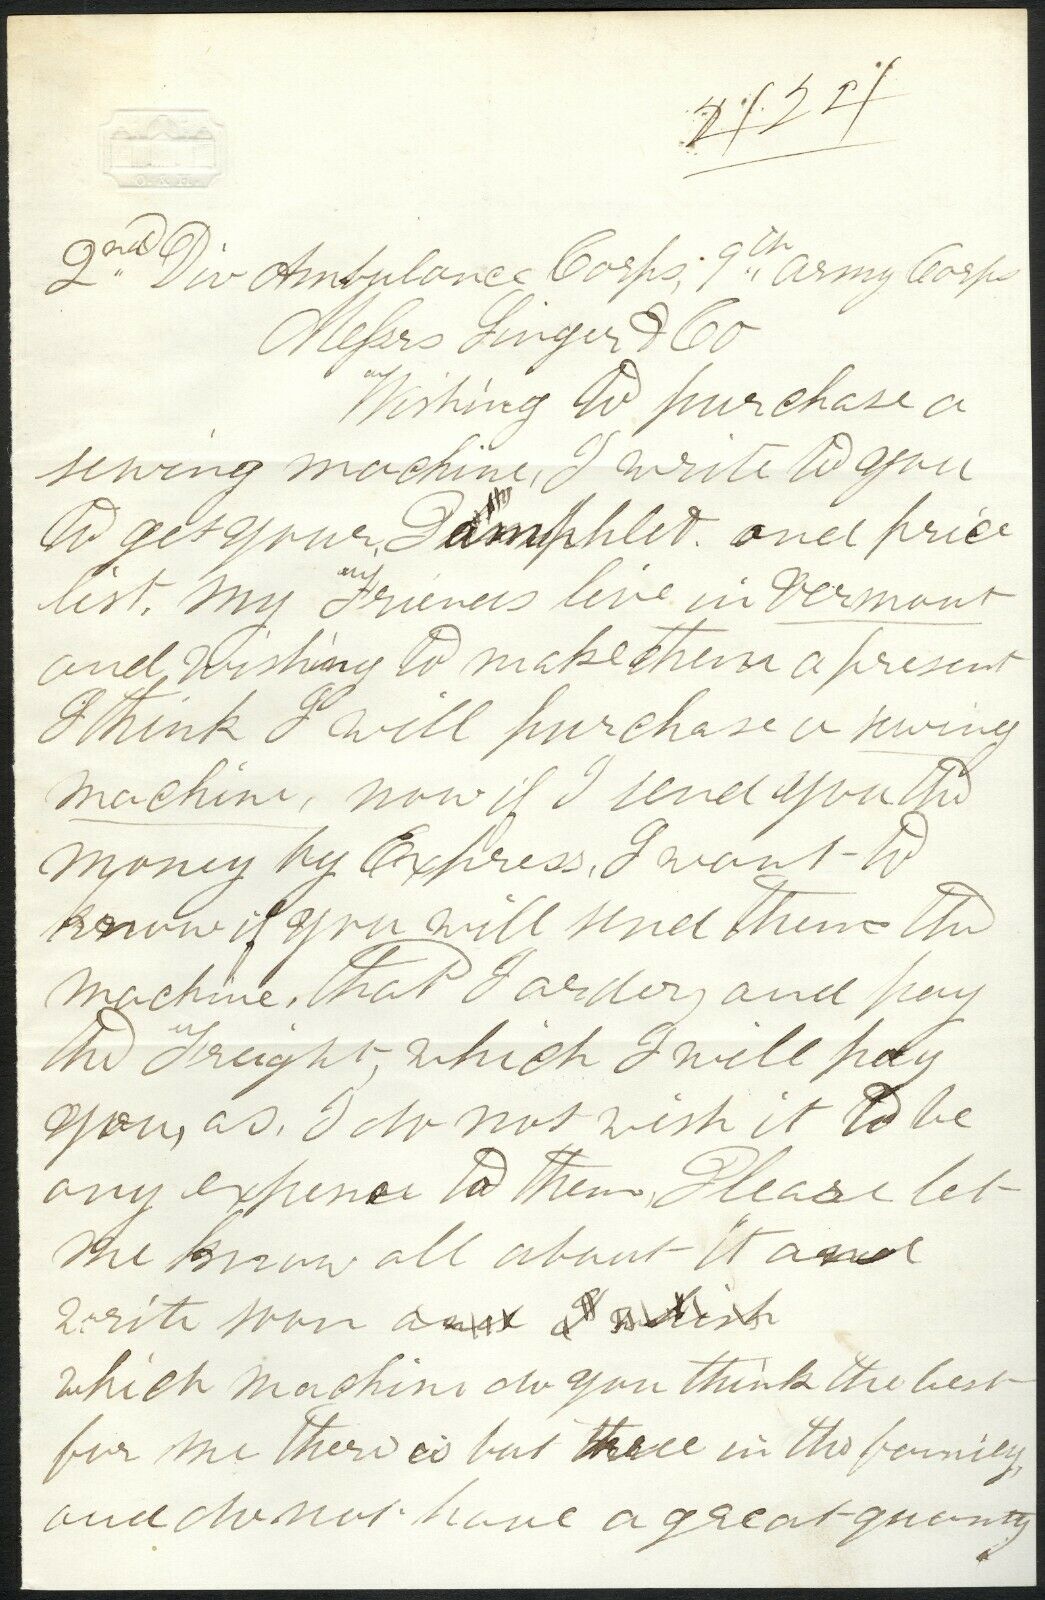 2nd Div Ambulance Corps, 9th Army Corps
Messrs Singer & Co
Wishing to purchase a
sewing machine, I write to you
to get your, Pamphlet. and price
list. My Friends live in Vermont
and wishing to make them a present
I think I will purchase a sewing
machine, now if I send you the
money by Express, I want to
know if you will send them the
machine, that I order, and pay
the Freight, which I will pay
you, as, I do not wish it to be
any expence to them, Please let
me know all about it and
write soon and I wish
which machine do you think the best
for me there is but three in the family,
and do not have a great quanty